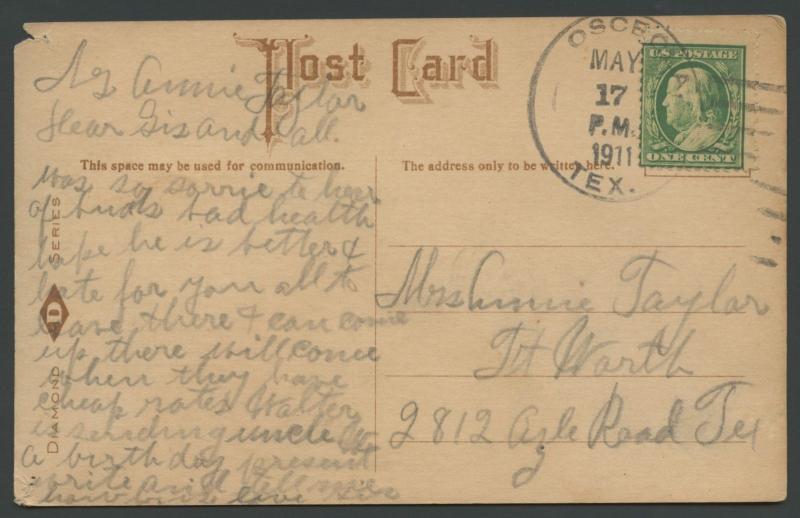 Post Card
OSCEOLA
MAY
17
P.M.
1911
TEX.
U.S. POSTAGE
ONE CENT
Annie Taylor
Dear Sis and all.
This space may be used for communication.
The address only to be written here.
was so sorrie to hear
of buds bad health
hope he is better &
hate for you all to
leave there & can come
up there will come
when they have
cheap rates Walter
is sending uncle
a birthday present
write and tell me
how
Mrs Annie Taylor
Ft Worth
2812 Azle Road Tex
DIAMOND D SERIES